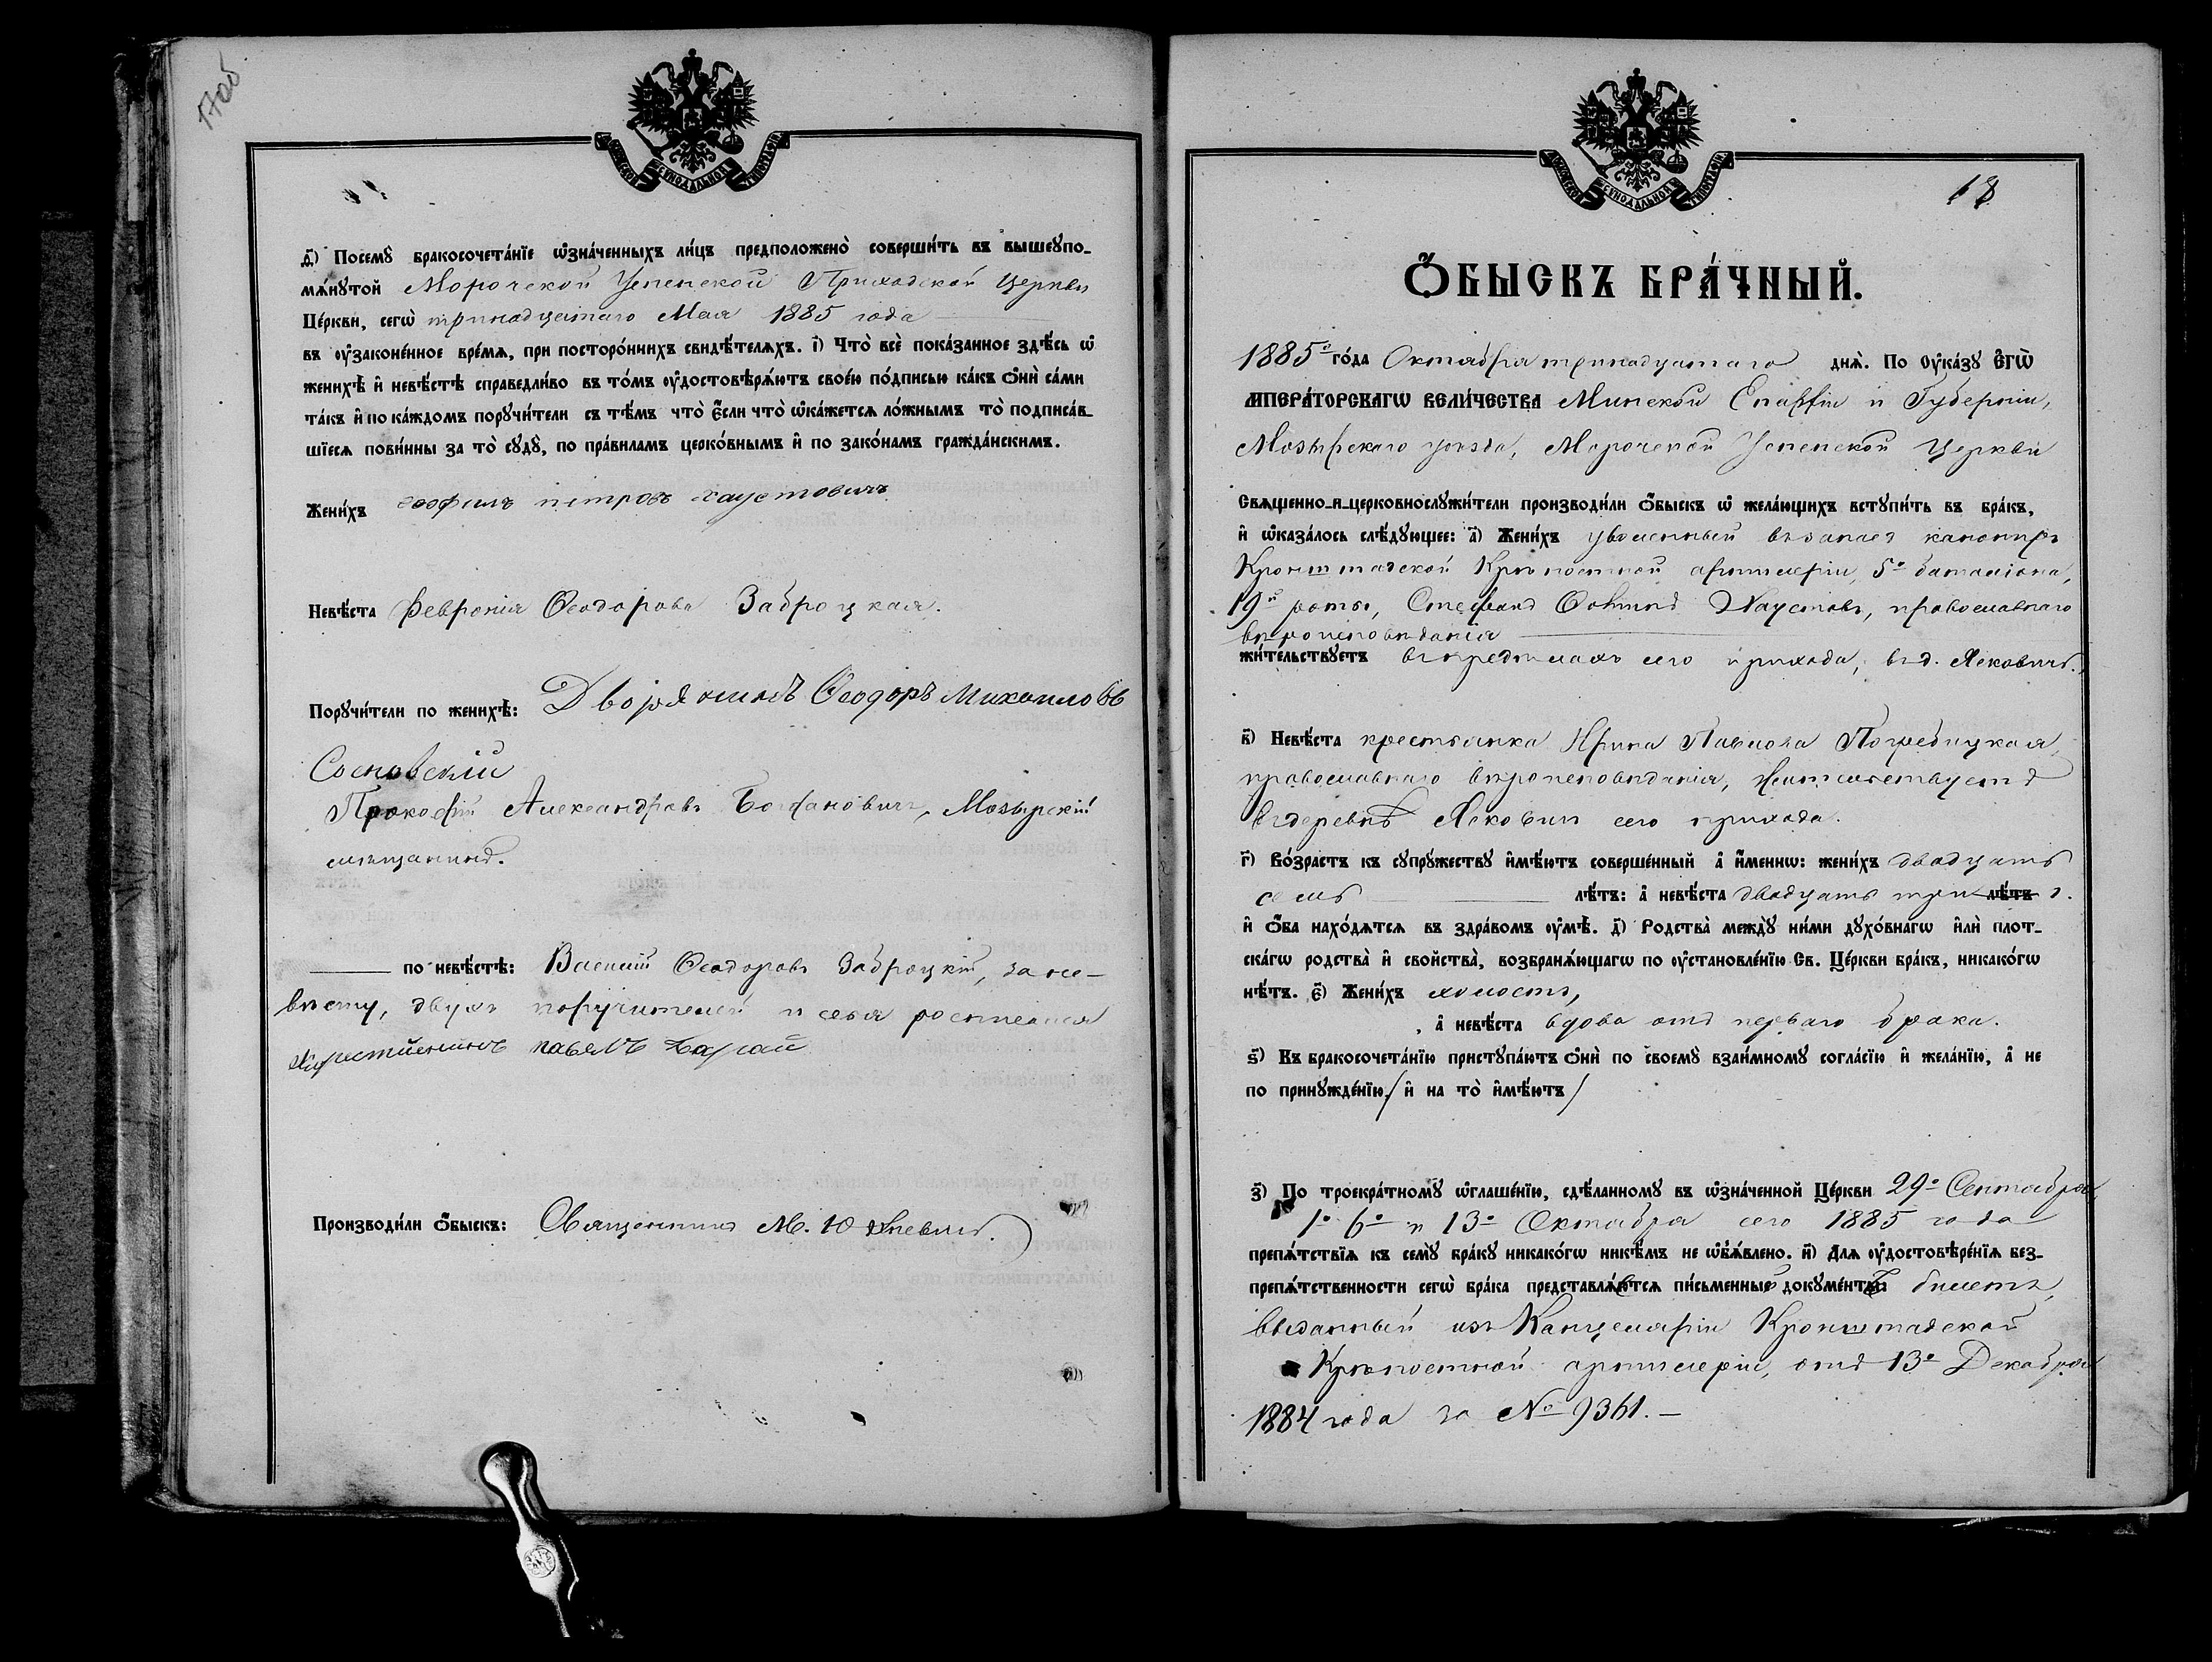 17об
МОСКОВСКОЙ СѴНОДАЛЬНОЙ ТИПОГРАФІИ.
д҃) Посемꙋ бракосочета́нїе ѡ҆зна́ченныхъ ли́цъ предположено̀ соверши́ть въ вышеꙋпо-
мѧ́нꙋтой Морочской Успенской Приходской Церкви
Це́ркви, сегѡ̀ тринадцатаго Мая 1885 года
въ ᲂу҆законе́нное вре́мѧ, при посторо́ннихъ свидѣ́телѧхъ. і҃) Что̀ всѐ пока́занное здѣ́сь ѡ҆
женихѣ̀ и҆ невѣ́стѣ справедли́во въ то́мъ ᲂу҆достовѣрѧ́ютъ свое́ю по́дписью ка́къ ѻ҆нѝ са́ми
та́къ и҆ по ка́ждомъ порꙋчи́тели съ тѣ́мъ что̀ є҆́сли что̀ ѡ҆ка́жетсѧ ло́жнымъ то̀ подписа́в-
шїесѧ пови́нны за то̀ сꙋдꙋ̀, по пра́виламъ церко́внымъ и҆ по зако́намъ гражда́нскимъ.
Жени́хъ ѳеофилъ петровъ хаустовичъ
Невѣ́ста Февронія Ѳеодорова Заброцкая.
Порꙋчи́тели по женихѣ̀: Дворянинъ Ѳеодоръ Михаиловъ
Сосновскій
Прокофій Александровъ Богдановичъ, Мозырскій
мѣщанинъ.
по невѣ́стѣ: Василій Ѳеодоровъ Заброцкій, за не-
вѣсту, двухъ поручителей и себя росписался
павелъ
Производи́ли ѻ҆́быскъ: Священникъ М. Юхневичъ.
МОСКОВСКОЙ СѴНОДАЛЬНОЙ ТИПОГРАФІИ.
18
Ѻ҆́БЫСКЪ БРА́ЧНЫЙ.
1885го го́да Октября тринадцатаго днѧ̀. По ᲂу҆ка́зꙋ Є҆гѡ̀
ИМПЕРА́ТОРСКАГѠ ВЕЛИ́ЧЕСТВА Минской Епархіи и Губерніи,
Мозырскаго уѣзда, Морочской Успенской Церкви
Свѧще́нно-и-церковнослꙋжи́тели производи́ли ѻ҆́быскъ ѡ҆ жела́ющихъ встꙋпи́ть въ бра́къ,
и҆ ѡ҆каза́лось слѣ́дꙋющее: а҃) Жени́хъ уволенный въ запасъ канониръ
Кронштадской Крѣпостной артилеріи, 5го баталіона,
19й роты, Стефанъ Хаустовъ, православнаго
вѣроисповѣданія
жи́тельствꙋетъ въ предѣлахъ сего прихода, въ д. Ясковичъ.
в҃) Невѣ́ста крестьянка Ирина Павлова Погребицкая
православнаго вѣроисповѣданія, жительствуетъ
въ деревнѣ Ясковичи сего прихода.
г҃) Во́зрастъ къ сꙋпрꙋ́жествꙋ и҆мѣ́ютъ соверше́нный а҆ и҆́меннѡ: жени́хъ двадцать
семь лѣ́тъ: а҆ невѣ́ста двадцать три лѣ́тъ г.
и҆ ѻ҆́ба нахо́дѧтсѧ въ здра́вомъ ᲂу҆мѣ̀. д҃) Родства̀ междꙋ̀ ни́ми дꙋхо́внагѡ и҆лѝ плот-
ска́гѡ родства̀ и҆ свойства̀, возбранѧ́ющагѡ по ᲂу҆становле́нїю Св. Це́ркви бра́къ, никако́гѡ
нѣ́тъ. є҃) Жени́хъ холостъ,
, а҆ невѣ́ста вдова отъ перваго брака.
ѕ҃) Къ бракосочета́нїю пристꙋпа́ютъ ѻ҆нѝ по своемꙋ̀ взаи́мномꙋ согла́сїю и҆ жела́нїю, а҆ не
по принꙋжде́нїю, / и҆ на то̀ и҆мѣ́ютъ /
з҃) По троекра́тномꙋ ѡ҆глаше́нїю, сдѣ́ланномꙋ въ ѡ҆зна́ченной Це́ркви 29го Сентября,
1го 6го и 13го Октября сего 1885 года
препѧ́тствїѧ къ семꙋ̀ бра́кꙋ никако́гѡ никѣ́мъ не ѡ҆б̾ѧ́влено. и҃) Длѧ ᲂу҆достовѣре́нїѧ без-
препѧ́тственности сегѡ̀ бра́ка представлѧ́етсѧ пи́сьменный докꙋме́нтъ: билетъ,
выданный изъ Канцеляріи Кронштадской
Крѣпостной артилеріи, отъ 13го Декабря
1884 года за № 9361.